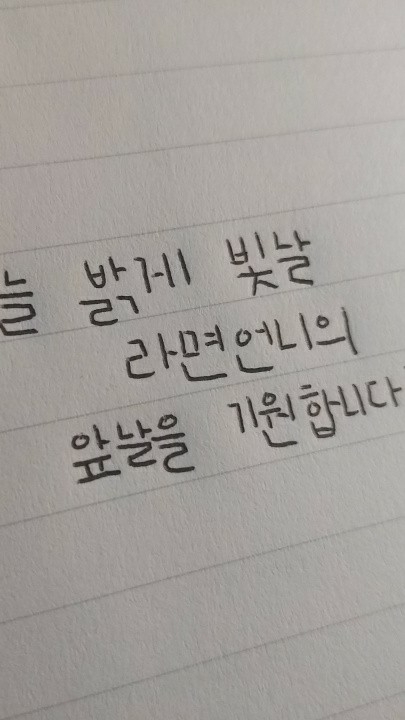 늘 밝게 빛날
라면언니의
앞날을 기원합니다